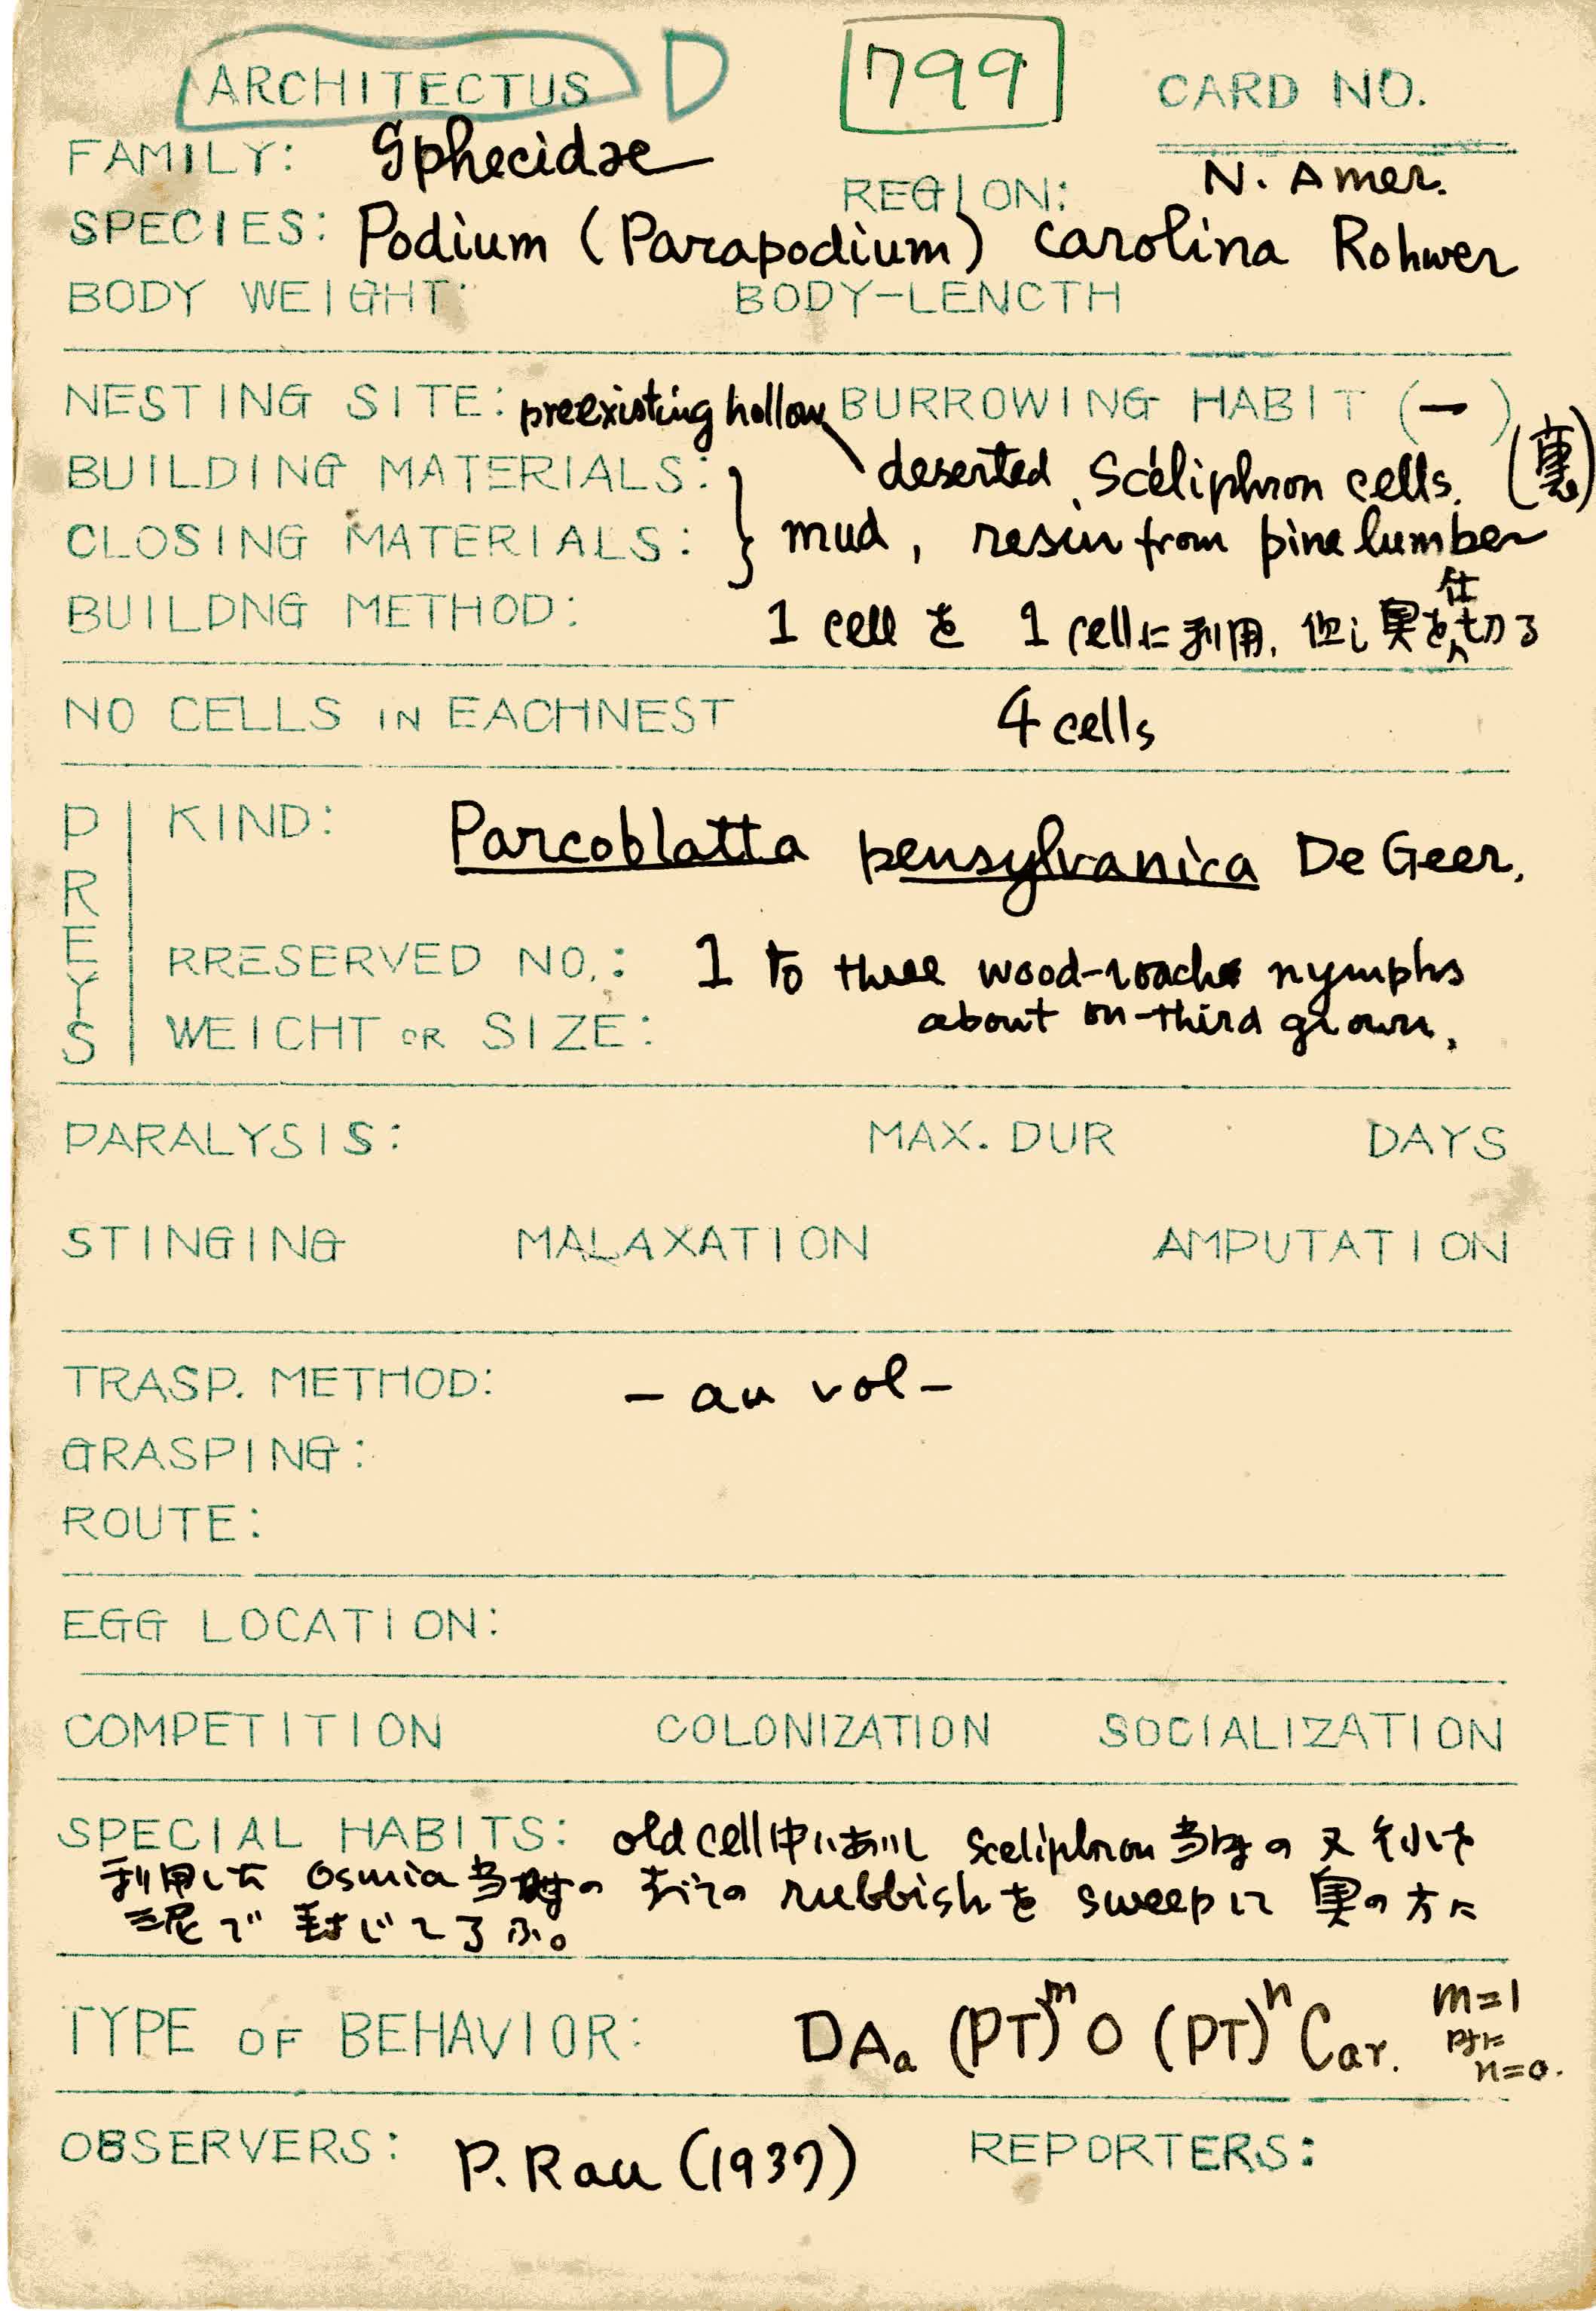 ARCHITECTUS D 799 CARD NO.
FAMILY: Sphecidae
REGION: N. Amer.
SPECIES: Podium (Parapodium) carolina Rohwer
BODY WEIGHT: BODY-LENCTH
NESTING SITE: preexisting hollow BURROWING HABIT (—)
deserted Sceliphron cells. (裏)
BUILDING MATERIALS:
CLOSING MATERIALS: } mud, resin from pine lumber
BUILDNG METHOD: 1 cell を 1 cellに利用, 但し奥を仕切る
NO CELLS IN EACHNEST 4 cells
PREYS
KIND: Parcoblatta pensylvanica De Geer.
RRESERVED NO.: 1 to three wood-roach nymphs
WEICHT OR SIZE: about on-third grown.
PARALYSIS: MAX. DUR DAYS
STINGING MALAXATION AMPUTATION
TRASP. METHOD: – au vol –
GRASPING:
ROUTE:
EGG LOCATION:
COMPETITION COLONIZATION SOCIALIZATION
SPECIAL HABITS: old cell中にありし Sceliphron 当時の 又
利用した Osmia当時の すべての rubbishを sweepして 奥の方に
泥で封じてしまふ。
TYPE OF BEHAVIOR: DAa (PT)^m O (PT)^n Car. m=1
時に
n=0.
OBSERVERS: P. Rau (1937) REPORTERS: